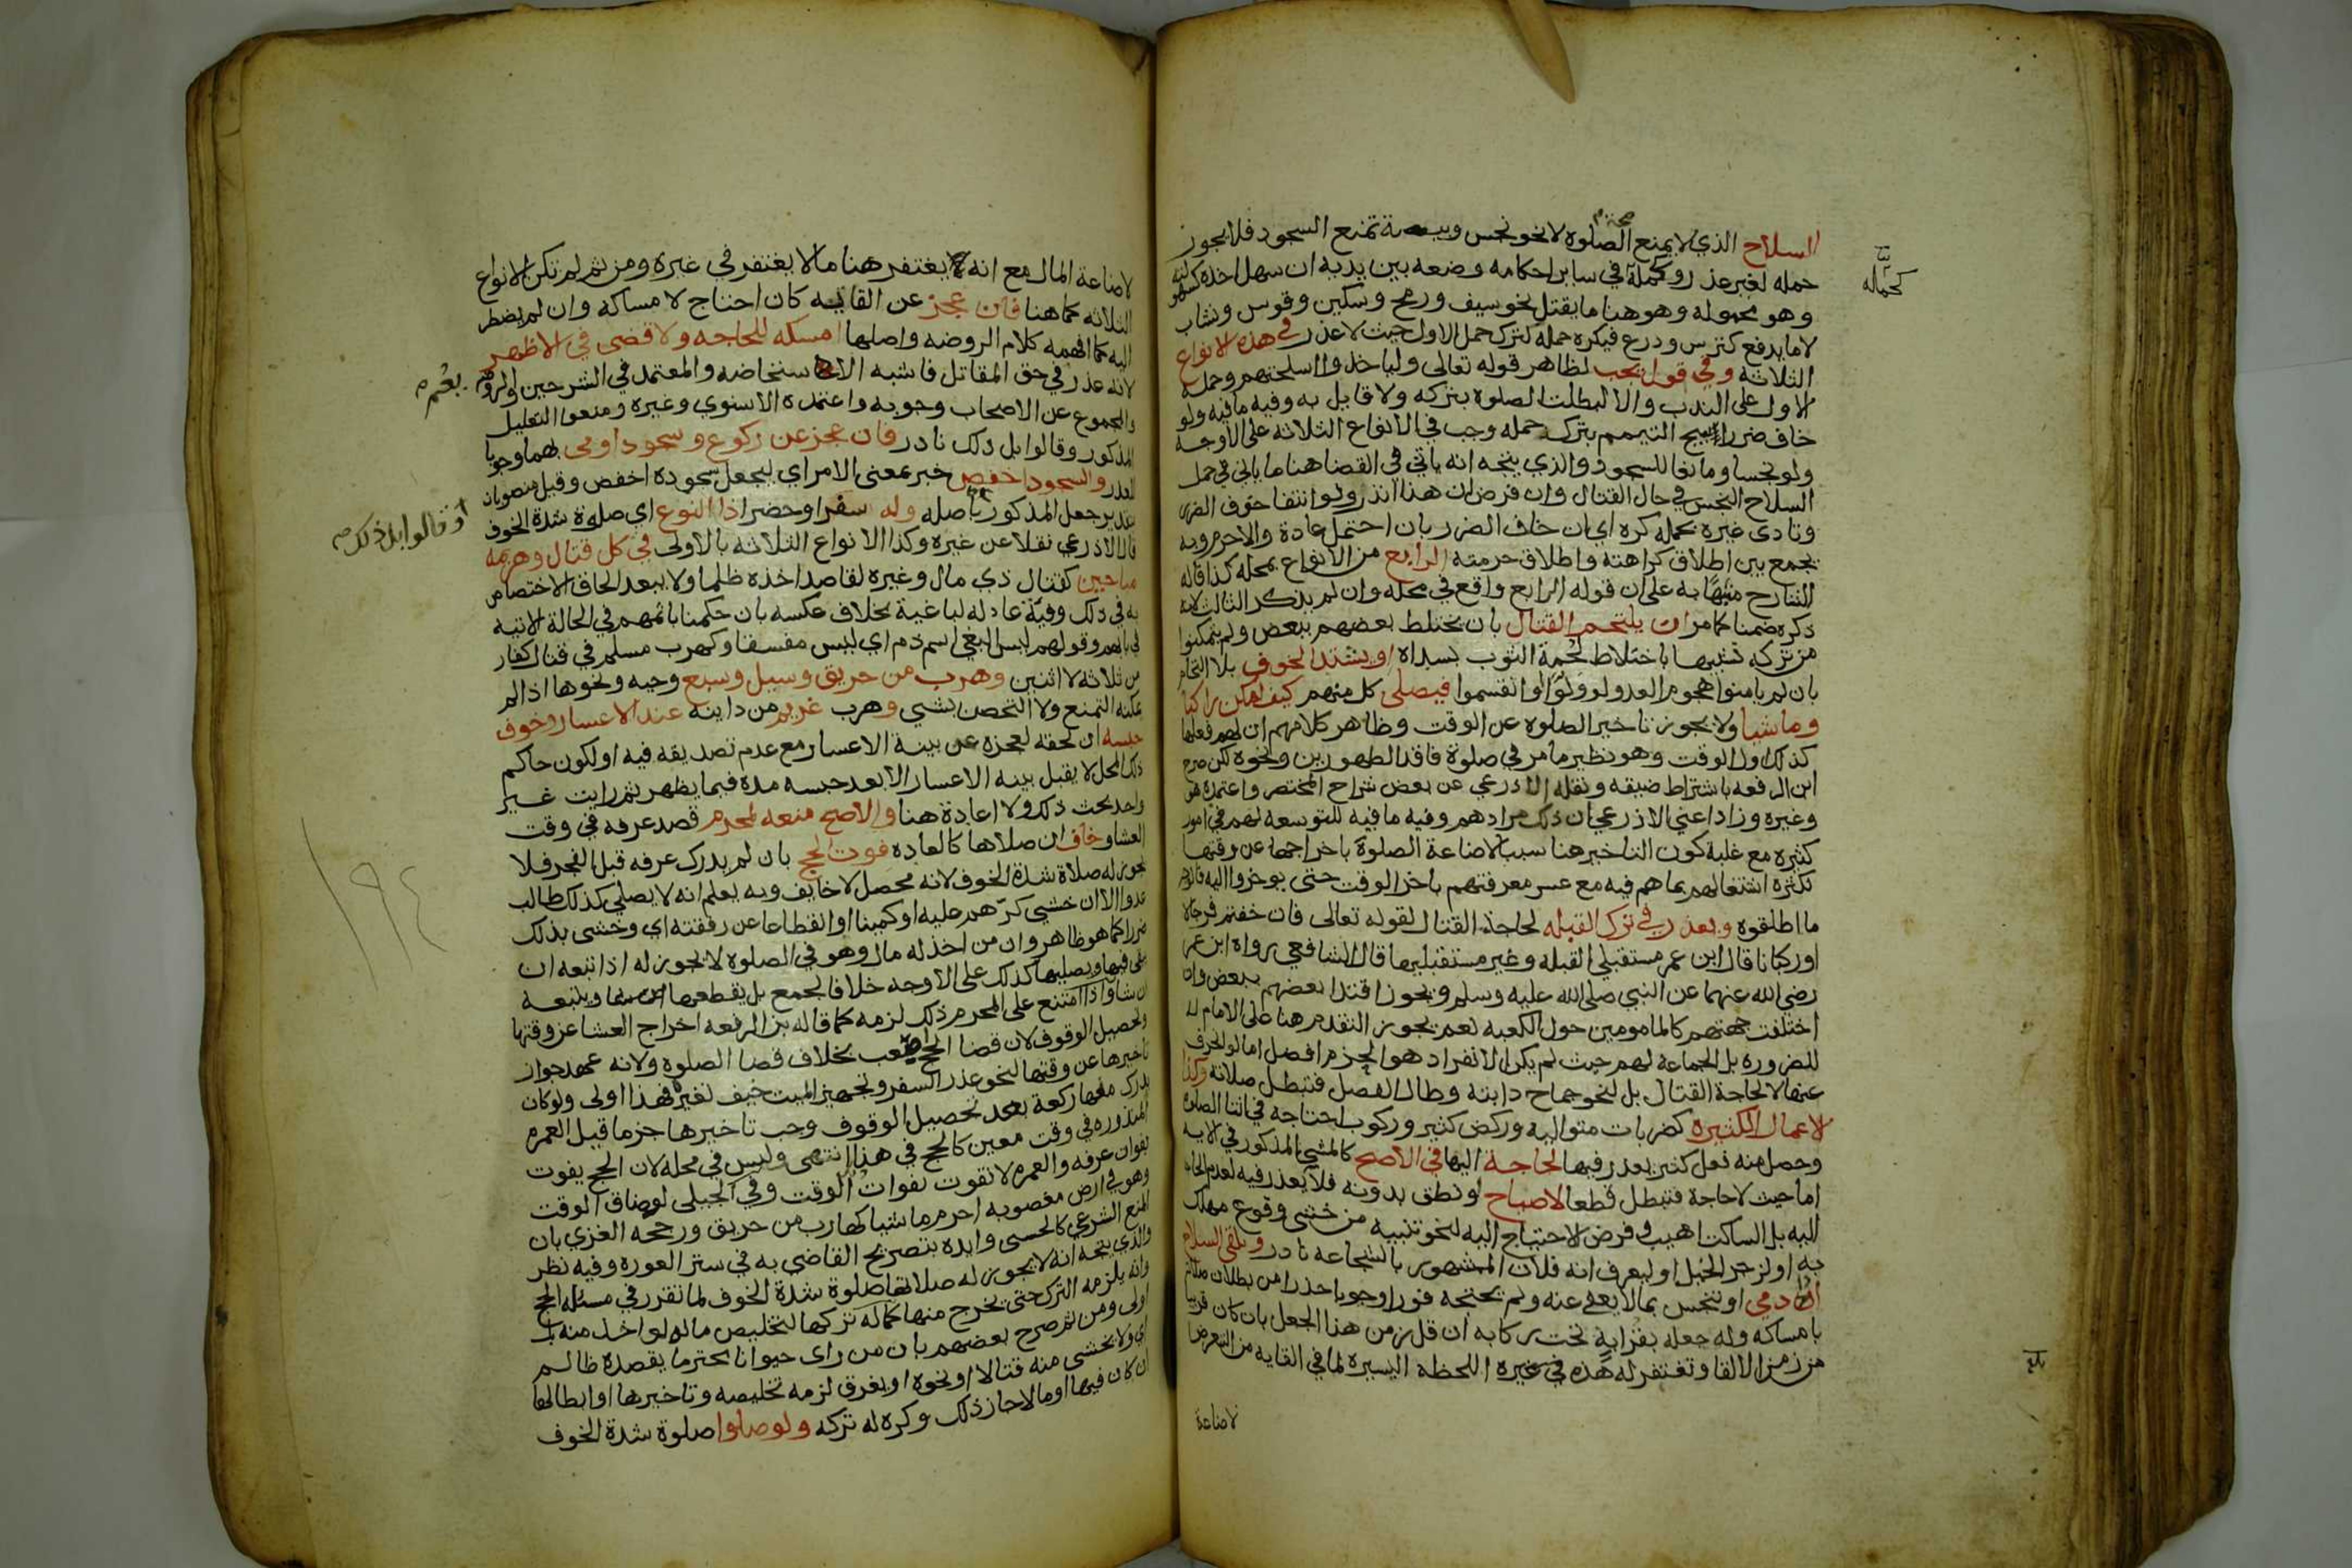 السلاح الذي لا يمنع الصلوة لا نحو نجس وبيضة تمنع السجود فلا يجوز
حمله لغير عذر وكحملة في ساير احكامه وضعه بين يديه ان سهل اخذه
وهو محموله وهو هنا ما يقتل نحو سيف ورمح وسكين وقوس ونشاب
لا ما يدفع كترس ودرع فيكره حمله كترك حمل الاول حيث لا عذر في هذه الانواع
الثلاثة وفي قول يجب لظاهر قوله تعالى ولياخذوا اسلحتهم وحمله
الاول على الندب والا لبطلت الصلوة بتركه ولا قايل به وفيه ما فيه ولو
خاف ضررا يبيح التيمم بترك حمله وجب في الانواع الثلاثة على الاوجه
ولو نجسا ومانعا للسجود والذي يتجه انه ياتي في القضا هنا ما ياتي في حمل
السلاح النجس في حال القتال وان فرض ان هذا اندر ولو انتفا خوف الضرر
وتاذى غيره بحمله كره اي ان خاف الضرر بان احتمل عادة والا حرم وبه
يجمع بين اطلاق كراهته واطلاق حرمته الرابع من الانواع بمحله كذا قاله
الشارح منبها به على ان قوله الرابع واقع في محله وان لم يذكر الثالث لانه
ذكره ضمنا كما مر ان يلتحم القتال بان يختلط بعضهم ببعض ولم يتمكنوا
من تركه تشبيها باختلاط لحمة الثوب بسداه او يشتد الخوف بلا التحام
بان لم يامنوا هجوم العدو لو ولوا او انقسموا فيصلى كل منهم كيف امكن راكبا
وماشيا ولا يجوز تاخير الصلوة عن الوقت وظاهر كلامهم ان لهم فعلها
كذلك اول الوقت وهو نظير ما مر في صلوة فاقد الطهورين ونحوه لكن صرح
ابن الرفعه باشتراط ضيقه ونقله الاذرعي عن بعض شراح المختصر واعتمده هو
وغيره وزاد اعني الاذرعي ان ذلك مرادهم وفيه ما فيه للتوسعه لهم في امور
كثيره مع غلبة كون التاخير هنا سببا لاضاعة الصلوة باخراجها عن وقتها
لكثرة اشتغالهم بما هم فيه مع عسر معرفتهم باخر الوقت حتى يوخروا اليه
ما اطلقوه ويعذر في ترك القبله لحاجة القتال لقوله تعالى فان خفتم فرجالا
او ركبانا قال ابن عمر مستقبلي القبله وغير مستقبليها قال الشافعي رواه ابن عمر
رضي الله عنهما عن النبي صلى الله عليه وسلم ويجوز اقتدا بعضهم ببعض وان
اختلفت جهتهم كالمامومين حول الكعبه نعم يجوز التقدم هنا على الامام
للضروره بل الجماعة لهم حيث لم يكن الانفراد هو الحزم افضل اما لو انحرف
عنها لا لحاجة القتال بل لنحو جماح دابته وطال الفصل فتبطل صلاته وكذا
الاعمال الكثيره كضربات متواليه وركض كثير وركوب احتاجه في اثنا الصلوة
وحصل منه فعل كثير يعذر فيها لحاجة اليها في الاصح كالمشي المذكور في الايه
اما حيث لا حاجة فتبطل قطعا لا صياح او نطق بدونه فلا يعذر فيه لعدم الحاجة
اليه بل الساكت اهيب وفرض الاحتياج اليه لنحو تنبيه من خشى وقوع مهلك
به او لزجر الخيل او ليعرف انه فلان المشهور بالشجاعه نادر ويلقى السلاح
اذا دمي او تنجس بما لا يعفى عنه ولم يحتجه فورا وجوبا حذرا من بطلان صلاته
بامساكه وله جعله بقرابه تحت ركابه ان قل زمن هذا الجعل بان كان قريبا
من زمن الالقا وتغتفر له هذه في غيره اللحظة اليسيره لما في القايه من التعرض
لاضاعة
كحماله
بلغ
لاضاعة المال مع انه يغتفر هنا ما لا يغتفر في غيره ومن ثم لم تكن الانواع
الثلاثه كما هنا فان عجز عن القايه كان احتاج لامساكه وان لم يضطر
اليه كما افهمه كلام الروضه واصلها امسكه للحاجه ولا قضى في الاظهر
لانه عذر في حق المقاتل فاشبه الاستحاضه والمعتمد في الشرحين والروضة
والمجموع عن الاصحاب وجوبه واعتمده الاسنوي وغيره ومنعوا التعليل
المذكور وقالوا بل ذلك نادر فان عجز عن ركوع وسجود اومى بهما وجوبا
للعذر والسجود اخفض خبر بمعنى الامر اي ليجعل سجوده اخفض وقيل منصوبان
بتقدير جعل المذكور باصله وله سفرا وحضرا ذا النوع اي صلوة شدة الخوف
قال الاذرعي نقلا عن غيره وكذا الانواع الثلاثه بالاولى في كل قتال وهزيمه
مباحين كقتال ذي مال وغيره لقاصد اخذه ظلما ولا يبعد الحاق الاختصاص
به في ذلك وفيّة عادله لباغية بخلاف عكسه بان حكمنا باثمهم في الحالة الاتيه
في بابهم وقولهم ليس البغي اسم ذم اي ليس مفسقا وكهرب مسلم في قتال كفار
من ثلاثه لا اثنين وهرب من حريق وسيل وسبع وحيه ونحوها اذا لم
يمكنه التمنع ولا التحصن بشي وهرب غريم من داينه عند الاعسار وخوف
حبسه ان لحقه لعجزه عن بينة الاعسار مع عدم تصديقه فيه او لكون حاكم
ذلك المحل لا يقبل بينه الاعسار الا بعد حبسه مدة فيما يظهر ثم رايت غير
واحد بحث ذلك ولا اعادة هنا والاصح منعه لمحرم قصد عرفه في وقت
العشا وخاف ان صلاها كالعاده فوت الحج بان لم يدرك عرفه قبل الفجر فلا
تجوز له صلاة شدة الخوف لانه محصل لا خايف وبه يعلم انه لا يصلي كذلك طالب
عدو الا ان خشي كرّهم عليه او كمينا او انقطاعا عن رفقته اي وخشى بذلك
ضررا كما هو ظاهر وان من اخذ له مال وهو في الصلوه لا يجوز له اذا تبعه ان
يبقى فيها ويصليها كذلك على الاوجه خلافا لجمع بل يقطعها ويتبعه
ان شا واذا امتنع على المحرم ذلك لزمه كما قاله بن الرفعه اخراج العشا عن وقتها
لتحصيل الوقوف لان قضا الحج اصعب بخلاف قضا الصلوه ولانه عهد جواز
تاخيرها عن وقتها لنحو عذر السفر وتجهيز الميت خيف تغيره فهذا اولى ولو كان
يدرك منها ركعة بعد تحصيل الوقوف وجب تاخيرها جزما قيل العمره
المنذوره في وقت معين كالحج في هذا انتهى وليس في محله لان الحج يفوت
بفوات عرفه والعمره لا تفوت بفوات الوقت وفي الجيلى لو ضاق الوقت
وهو في ارض مغصوبه احرم ماشيا كهارب من حريق ورجحه الغزي بان
المنع الشرعي كالحسى وايده بتصريح القاضي به في ستر العوره وفيه نظر
والذي يتجه انه لا يجوز له صلاتها صلوة شدة الخوف لما تقرر في مسئلة الحج
وانه يلزمه الترك حتى يخرج منها كما له تركها لتخليص ماله لو اخذ منه بل
اولى ومن ثم صرح بعضهم بان من راى حيوانا محترما يقصده ظالم
اي ولا يخشى منه قتالا او نحوه او يغرق لزمه تخليصه وتاخيرها او ابطالها
ان كان فيها او مالا جاز ذلك وكره له تركه ولو صلوا صلوة شدة الخوف
وقالوا بل ذلك
١٩٤